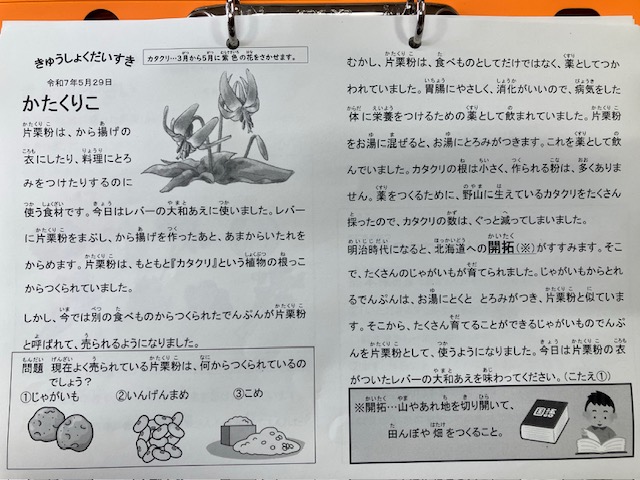 きゅうしょくだいすき
カタクリ…3月から5月に紫色の花をさかせます。
令和7年5月29日
かたくりこ
片栗粉は、から揚げの
衣にしたり、料理にとろ
みをつけたりするのに
使う食材です。今日はレバーの大和あえに使いました。レバー
に片栗粉をまぶし、から揚げを作ったあと、あまからいたれを
からめます。片栗粉は、もともと『カタクリ』という植物の根っこ
からつくられていました。
しかし、今では別の食べものからつくられたでんぷんが片栗粉
と呼ばれて、売られるようになりました。
問題 現在よく売られている片栗粉は、何からつくられているの
でしょう？
①じゃがいも ②いんげんまめ ③こめ
むかし、片栗粉は、食べものとしてだけではなく、薬としてつか
われていました。胃腸にやさしく、消化がいいので、病気をした
体に栄養をつけるための薬として飲まれていました。片栗粉
をお湯に混ぜると、お湯にとろみがつきます。これを薬として飲
んでいました。カタクリの根は小さく、作られる粉は、多くありま
せん。薬をつくるために、野山に生えているカタクリをたくさん
採ったので、カタクリの数は、ぐっと減ってしまいました。
明治時代になると、北海道への開拓（※）がすすみます。そこ
で、たくさんのじゃがいもが育てられました。じゃがいもからとれ
るでんぷんは、お湯にとくと とろみがつき、片栗粉と似ていま
す。そこから、たくさん育てることができるじゃがいものでんぷ
んを片栗粉として、使うようになりました。今日は片栗粉の衣
がついたレバーの大和あえを味わってください。（こたえ①）
※開拓…山やあれ地を切り開いて、
田んぼや畑をつくること。
国語